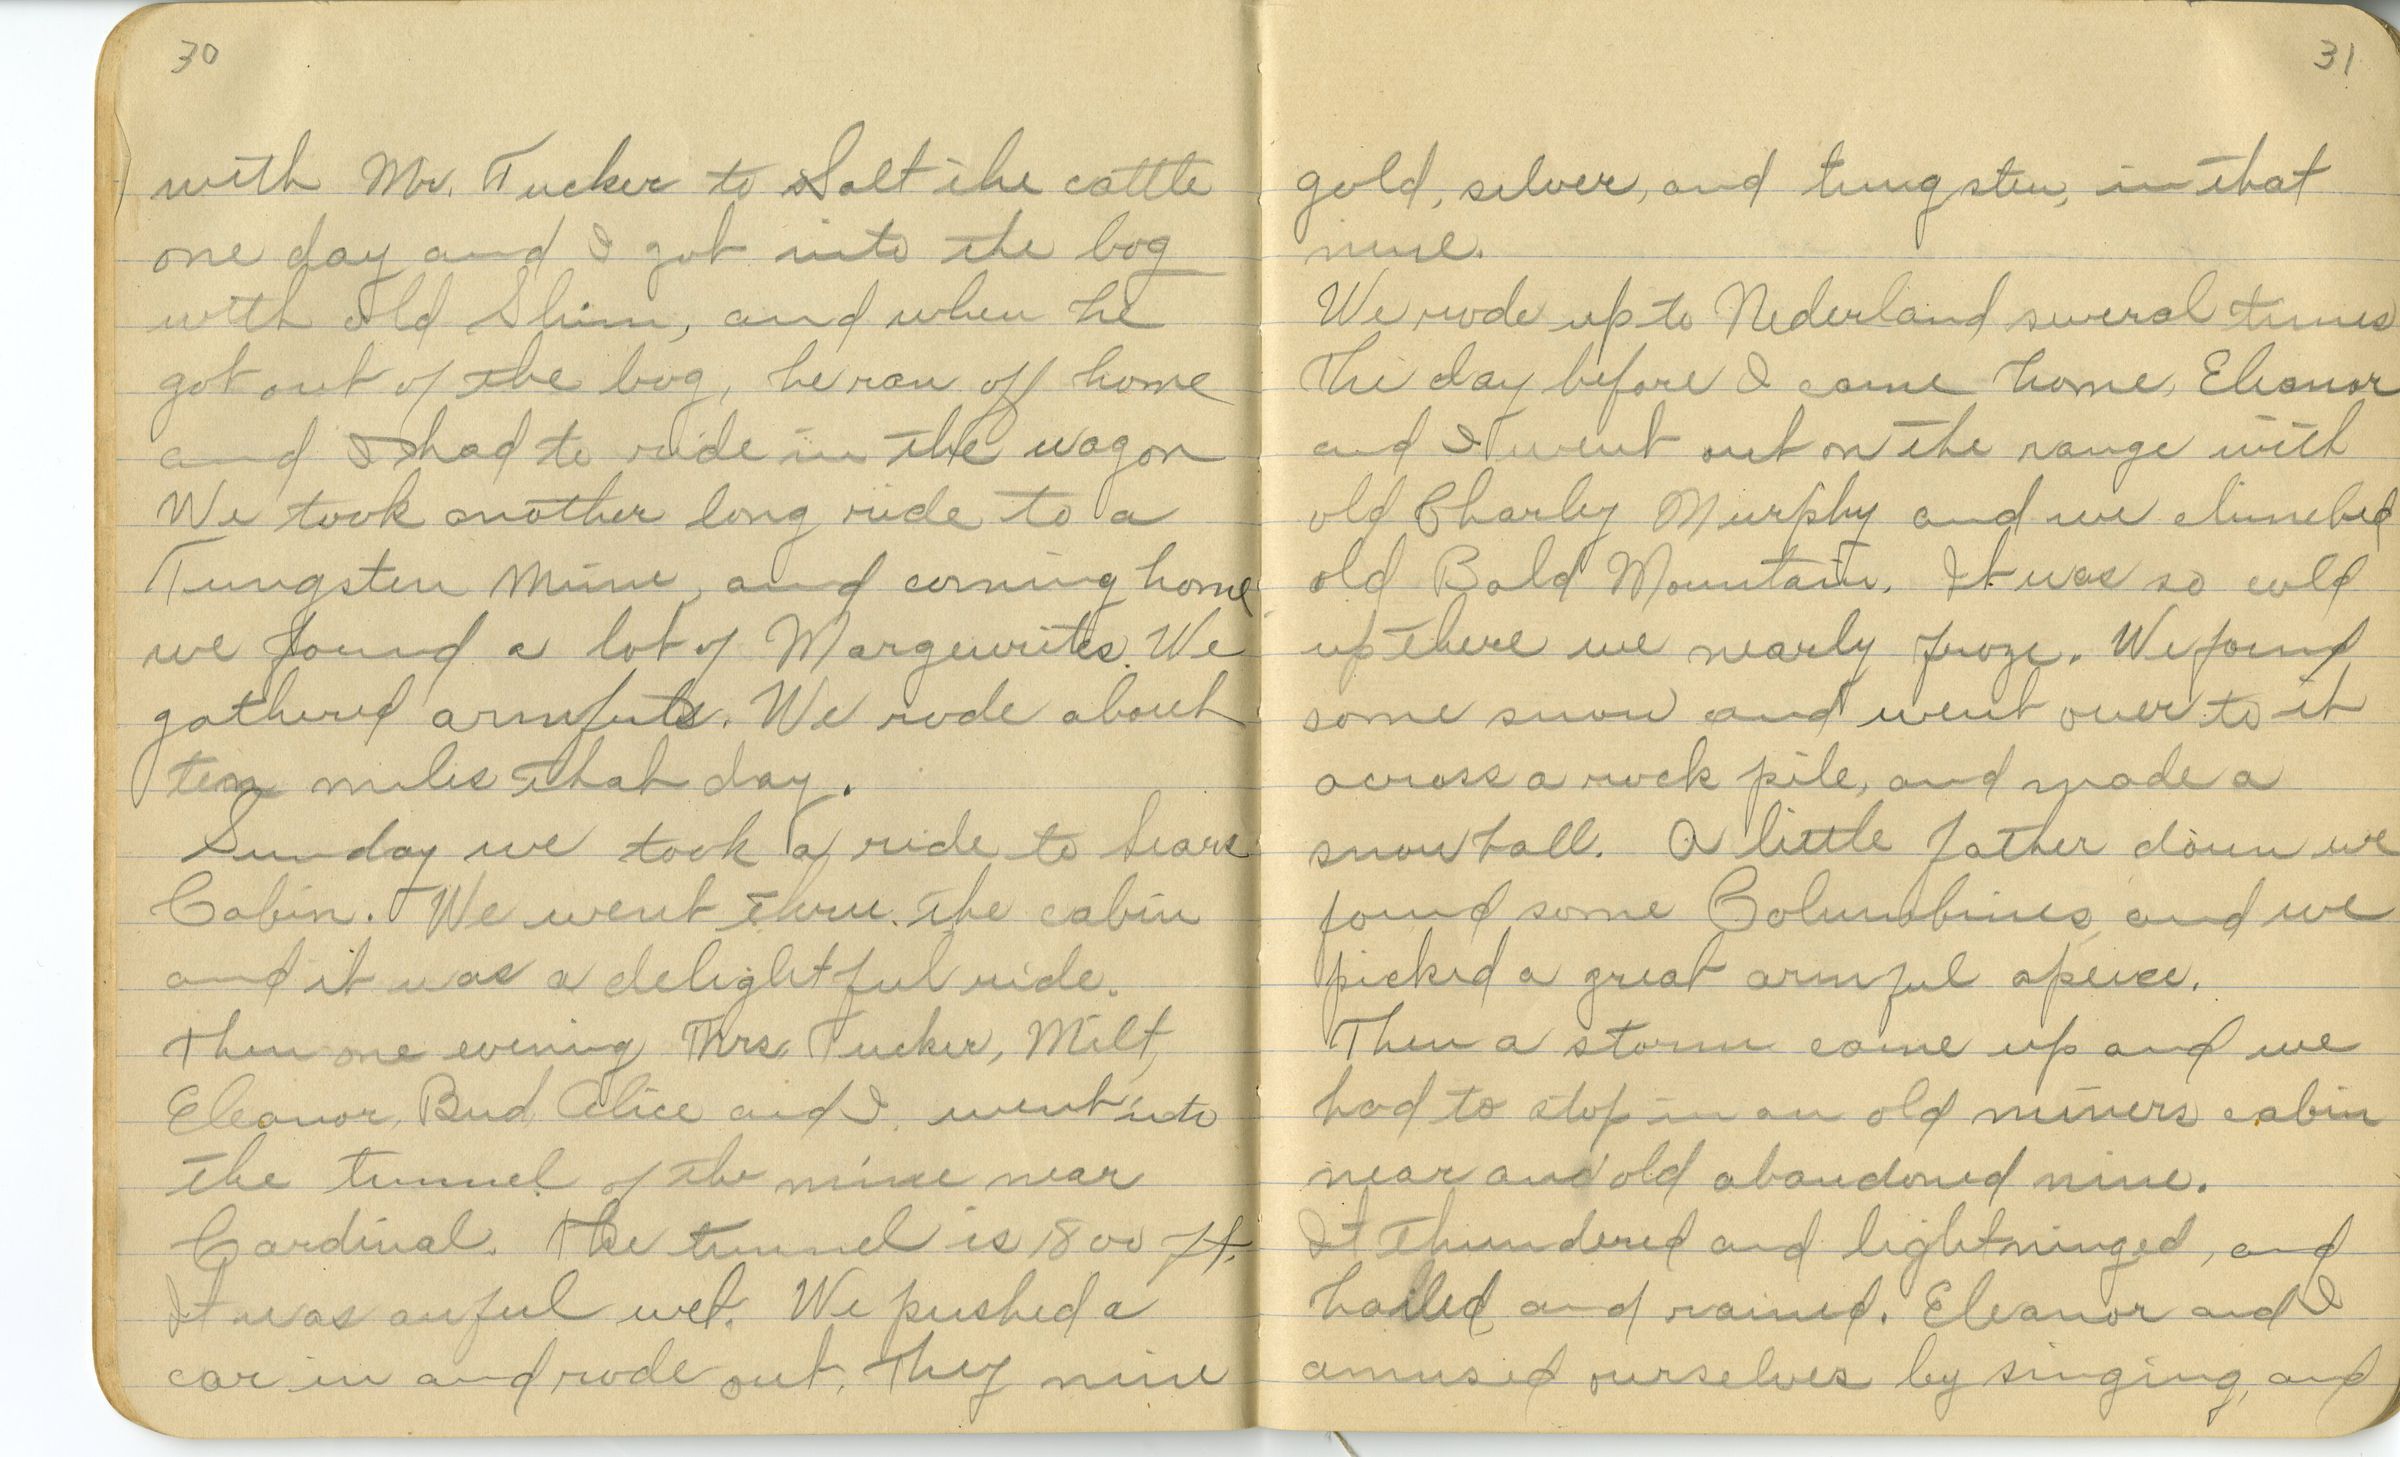 30
with Mr. Tucker to Salt the cattle
one day and I got into the bog
with old Shim, and when he
got out of the bog, he ran off home
and I had to ride in the wagon
We took another long ride to a
Tungsten Mine, and coming home
we found a lot of Margeurites. We
gathered armfuls. We rode about
ten miles that day.
Sunday we took a ride to Sears
Cabin. We went thru the cabin
and it was a delightful ride.
Then one evening Mrs. Tucker, Milt,
Eleanor, Bud, Alice and I, went into
the tunnel of the mine near
Cardinal. The tunnel is 1800 ft.
It was awful wet. We pushed a
car in and rode out. They mine
31
gold, silver, and tungsten, in that
mine.
We rode up to Nederland several times
The day before I came home, Eleanor
and I went out on the range with
old Charley Murphy and we climebed
old Bald Mountain. It was so cold
up there we nearly froze. We found
some snow and went over to it
across a rock pile, and made a
snow ball. A little father down we
found some Columbines, and we
picked a great armful apeice.
Then a storm came up and we
had to stop in an old miners cabin
near and old abandoned mine.
It thundered and lightninged, and
hailed and rained. Eleanor and I
amused ourselves by singing, and